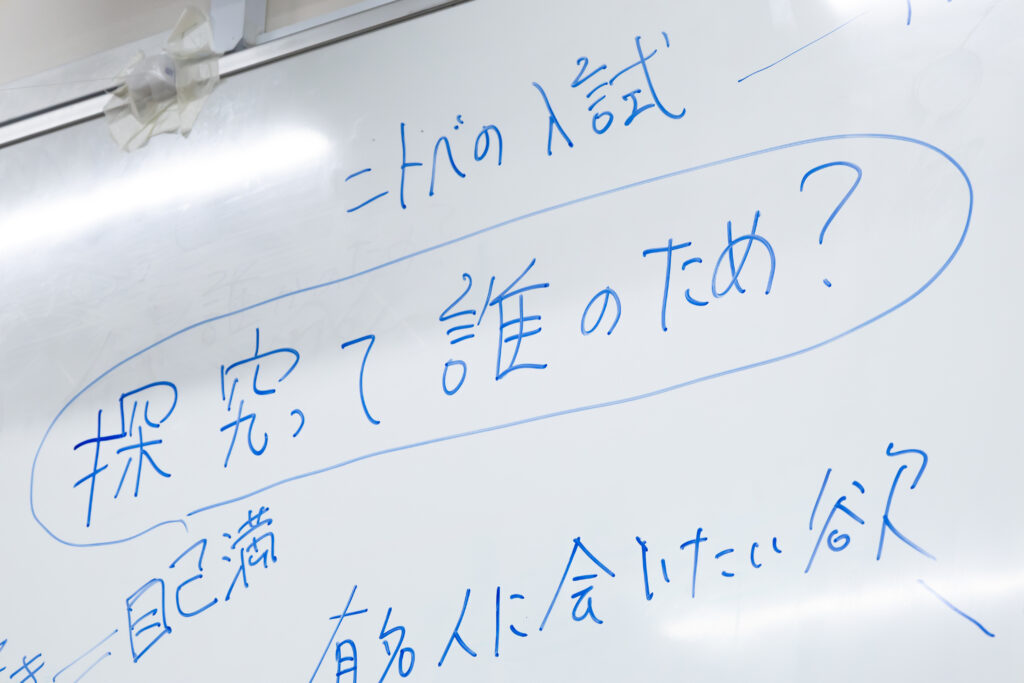 ニトベの入試
探究って誰のため?
自己満
有名人に会いたい欲